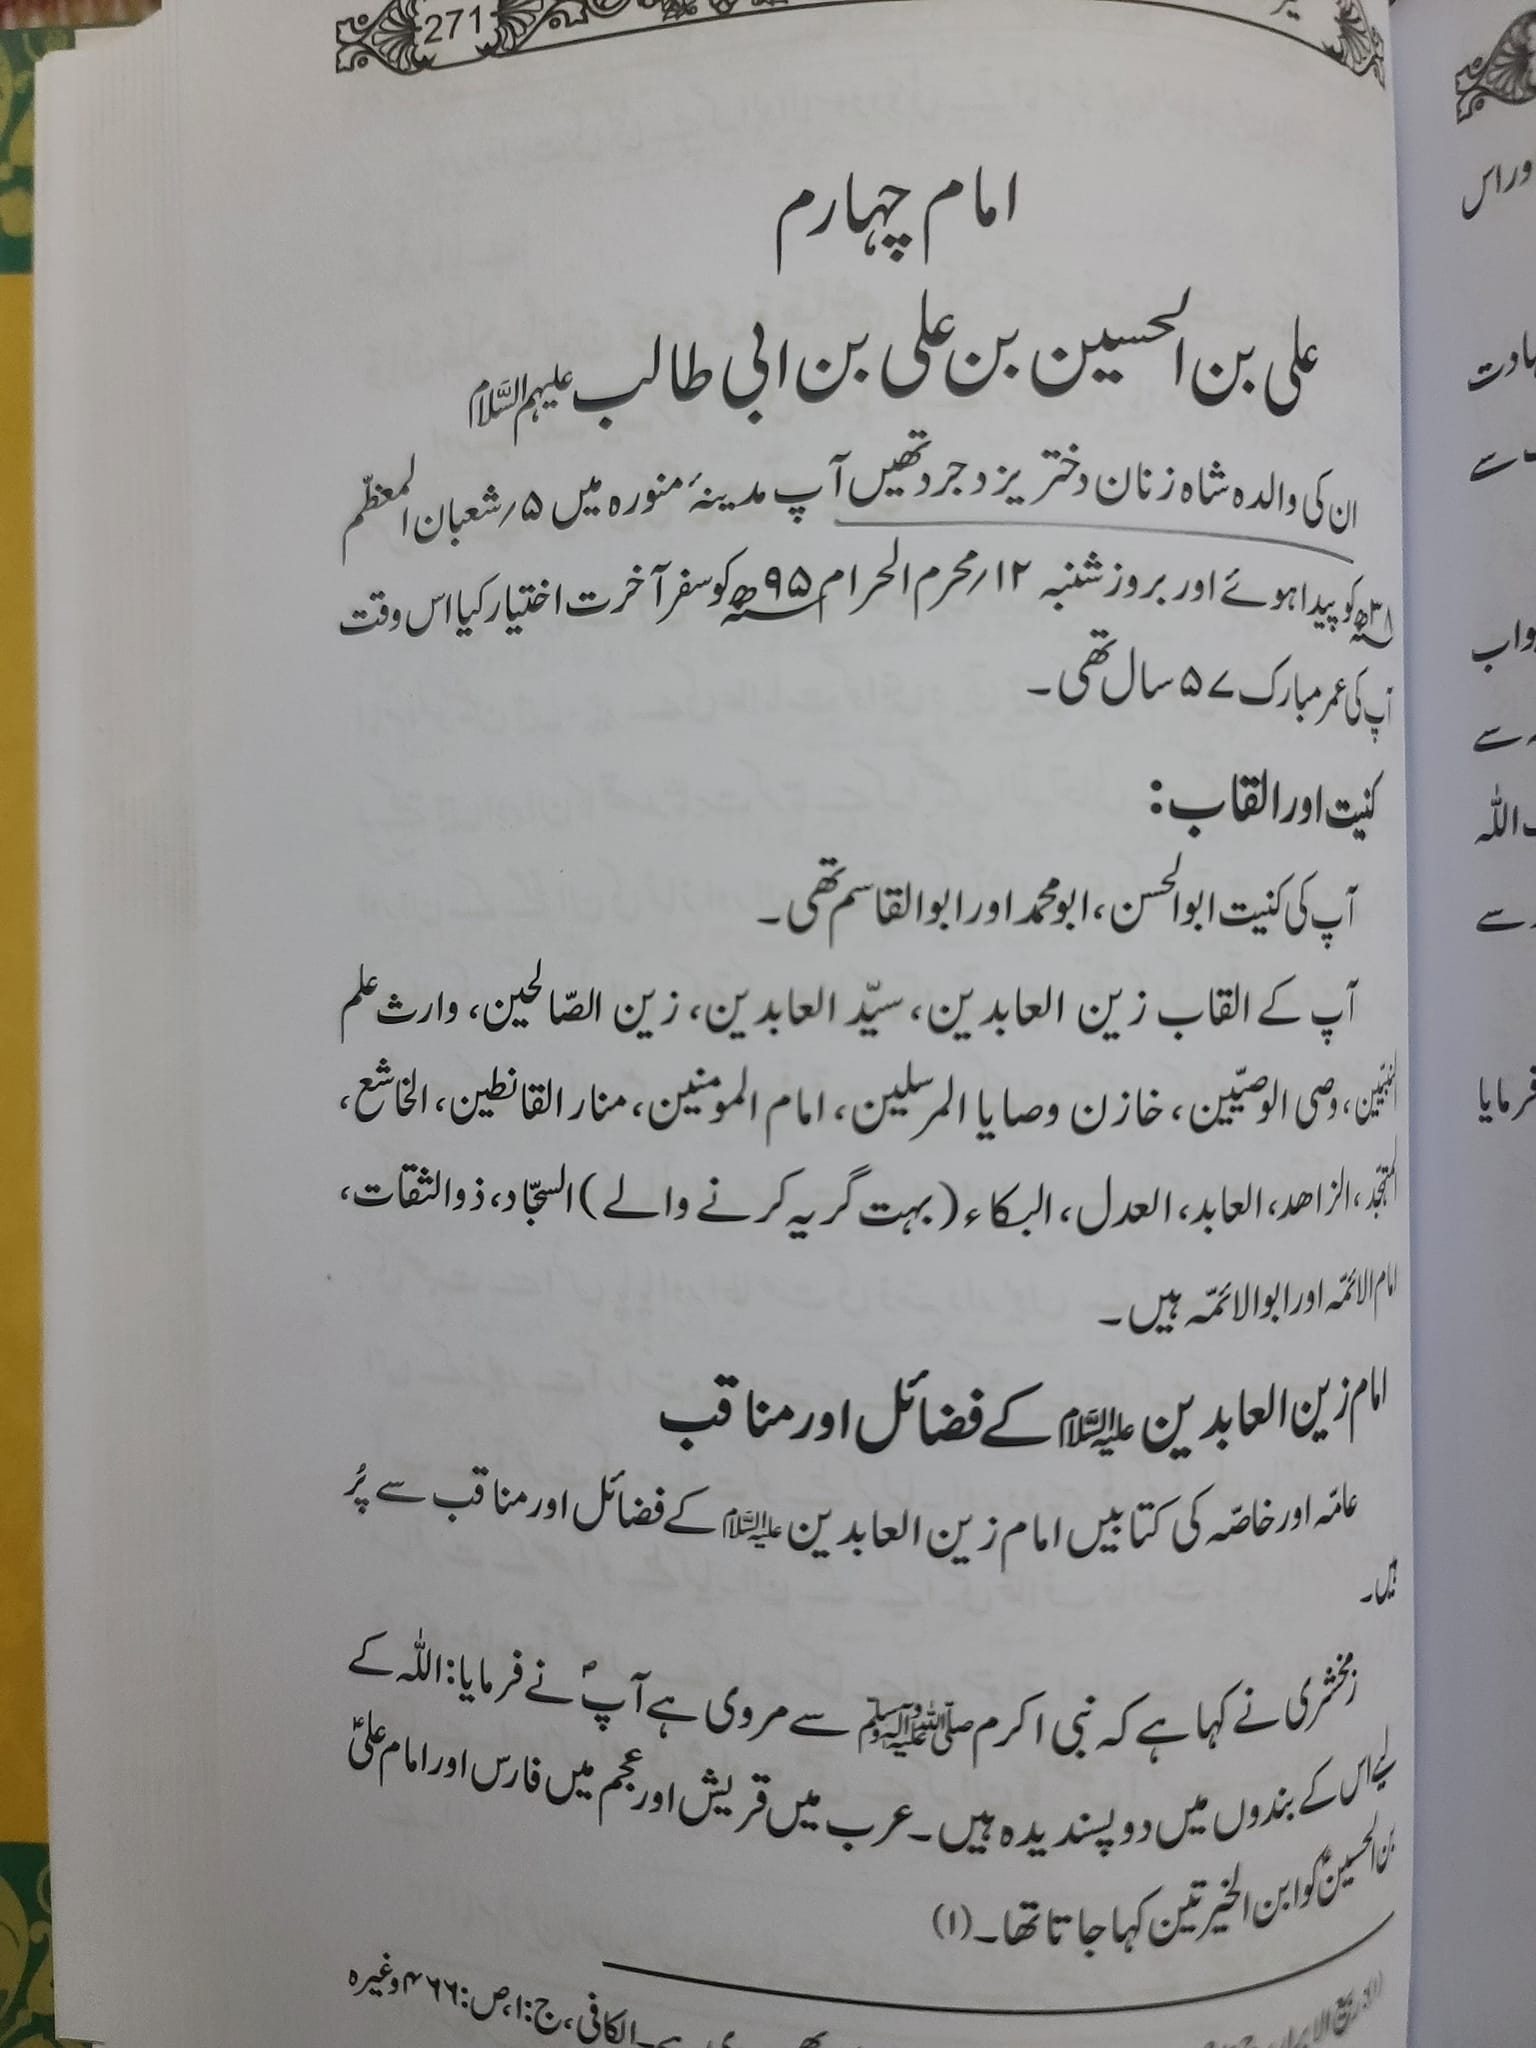 271
امام چہارم
علی بن الحسین بن علی بن ابی طالب علیہم السّلام
ان کی والدہ شاہ زنان دختر یزدجرد تھیں آپ مدینۂ منورہ میں ۵؍شعبان المعظّم
۳۸ھ کو پیدا ہوئے اور بروز شنبہ ۱۲؍محرم الحرام ۹۵ھ کو سفر آخرت اختیار کیا اس وقت
آپ کی عمر مبارک ۵۷ سال تھی۔
کنیت اور القاب:
آپ کی کنیت ابوالحسن، ابومحمد اور ابوالقاسم تھی۔
آپ کے القاب زین العابدین، سیّد العابدین، زین الصّالحین، وارث علم
النبیّین، وصی الوصیّین، خازن وصایا المرسلین، امام المومنین، منار القانطین، الخاشع،
المتہجّد، الزاھد، العابد، العدل، البکاء (بہت گریہ کرنے والے) السجّاد، ذوالثقات،
امام الائمّہ اور ابوالائمّہ ہیں۔
امام زین العابدین علیہ السّلام کے فضائل اور مناقب
عامّہ اور خاصّہ کی کتابیں امام زین العابدین علیہ السّلام کے فضائل اور مناقب سے پُر
ہیں۔
زمخشری نے کہا ہے کہ نبی اکرم صلی اللہ علیہ وآلہ وسلم سے مروی ہے آپؐ نے فرمایا: اللہ کے
لیے اس کے بندوں میں دو پسندیدہ ہیں۔ عرب میں قریش اور عجم میں فارس اور امام علیؑ
بن الحسینؑ کو ابن الخیرتین کہا جاتا تھا۔ (۱)
(۱) ربیع الابرار الکافی، ج:۱، ص:۴۶۶ وغیرہ
وراس
سے
واب
سے
اللہ
سے
فرمایا